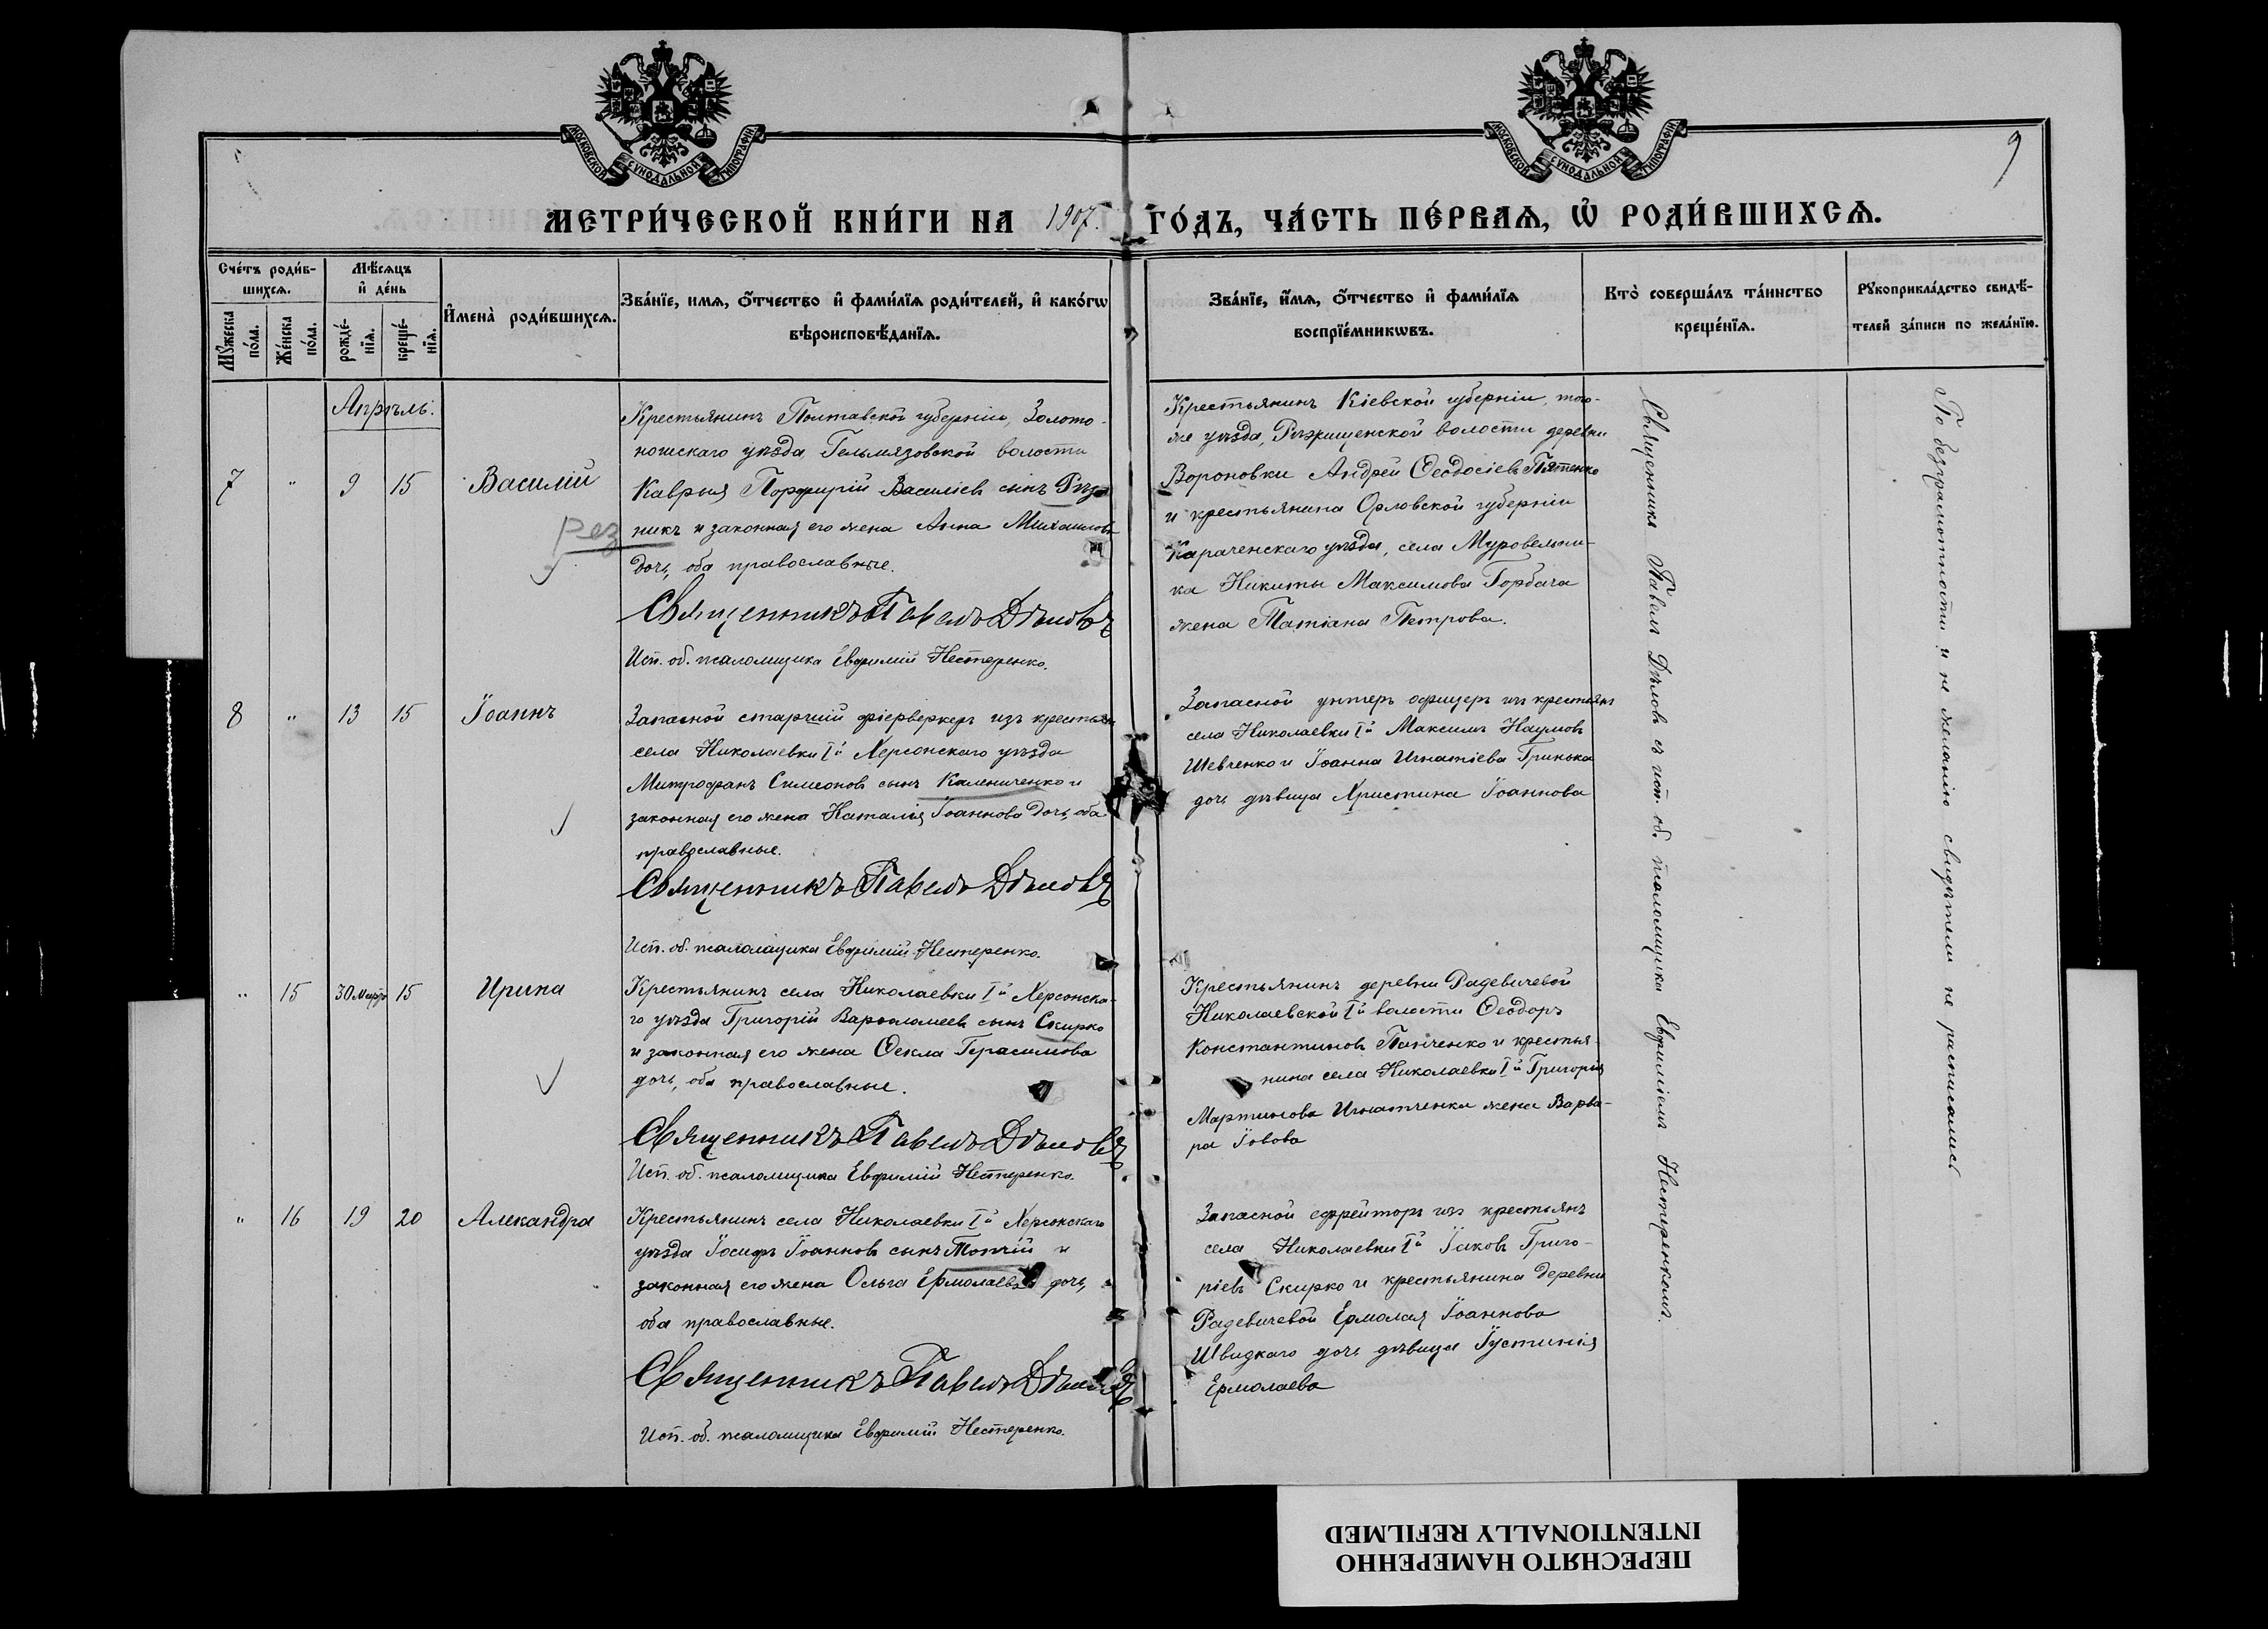 МОСКОВСКОЙ СУНОДАЛЬНОЙ ТИПОГРАФІИ
МОСКОВСКОЙ СУНОДАЛЬНОЙ ТИПОГРАФІИ
9
МЕТРИ́ЧЕСКОЙ КНИ́ГИ НА 1907. ГО́ДЪ, ЧА́СТЬ ПЕ́РВАѦ, Ѡ҆ РОДИ́ВШИХСѦ.
Сче́тъ роди́в-
шихсѧ.
Мꙋ́жеска по́ла.
Же́нска по́ла.
Мѣ́сѧцъ
и҆ де́нь
рожде́-
нїѧ.
креще́-
нїѧ.
И҆мена̀ роди́вшихсѧ.
Зва́нїе, имѧ, о҆́тчество и҆ фамѝлїѧ роди́телей, и҆ како́гѡ
вѣроисповѣ́данїѧ.
Зва́нїе, и҆́мѧ, о҆́тчество и҆ фами́лїѧ
воспрїе́мникѡвъ.
Кто̀ соверша́лъ та́инство
креще́нїѧ.
Рꙋкоприкла́дство свидѣ́-
телей за́писи по жела́нїю.
Апрѣль.
7 " 9 15 Василій
Крестьянинъ Полтавской губерніи, Золото-
ношскаго уѣзда Гельмязовской волости
Каврыя Порфирій Василіев сынъ Рѣз
никъ и законная его жена Анна Михаилова
дочь, оба православные.
Рез
Священникъ Павелъ Дѣмовъ
Исп. об. псаломщика Евфимій Нестеренко.
Крестьянинъ Кіевской губерніи, того-
же уѣзда, Ржищенской волости деревни
Вороновки Андрей Ѳеодосіевъ Пятенко
и крестьянина Орловской губерніи
Караченскаго уѣзда, села Муровельни-
ка Никиты Максимова Горбача
жена Татіана Петрова.
8 " 13 15 Іоаннъ
Запасной старшій фіерверкеръ изъ крестьян
села Николаевки Iй Херсонскаго уѣзда
Митрофанъ Симеоновъ сынъ Калениченко и
законная его жена Наталія Іоаннова дочь, оба
православные.
Священникъ Павелъ Дѣмовъ
Исп. об. псаломщика Евфимій Нестеренко.
Запасной унтеръ офицеръ изъ крестьянъ
села Николаевки Iй Максимъ Наумовъ
Шевченко и Іоанна Игнатіева Гринька
дочь дѣвица Христина Іоаннова
" 15 30 Март 15 Ирина
Крестьянинъ села Николаевки Iй Херсонска-
го уѣзда Григорій Варѳоломеевъ сынъ Скирко
и законная его жена Ѳекла Герасимова
дочь, оба православные.
Священникъ Павелъ Дѣмовъ
Исп. об. псаломщика Евфимій Нестеренко.
Крестьянинъ деревни Радевичевой
Николаевской Iй волости Ѳеодоръ
Константиновъ Панченко и крестья-
нина села Николаевки Iй Григорія
Мартинова Игнатченка жена Варва-
ра Іовова
" 16 19 20 Александра
Крестьянинъ села Николаевки Iй Херсонскаго
уѣзда Іосифъ Іоанновъ сынъ Топчій и
законная его жена Ольга Ермолаева дочь,
оба православные.
Священникъ Павелъ Дѣмовъ
Исп. об. псаломщика Евфимій Нестеренко.
Запасной ефрейторъ изъ крестьянъ
села Николаевки Iй Іаковъ Григо-
ріевъ Скирко и крестьянина деревни
Радевичевой Ермолая Іоаннова
Швидкаго дочь дѣвица Іустинія
Ермолаева
Священникъ Павелъ Дѣмовъ съ исп. об. псаломщика Евфиміемъ Нестеренкомъ.
По безграмотности и не желанію свидѣтели не расписались
ПЕРЕСНЯТО НАМЕРЕННО
INTENTIONALLY REFILMED